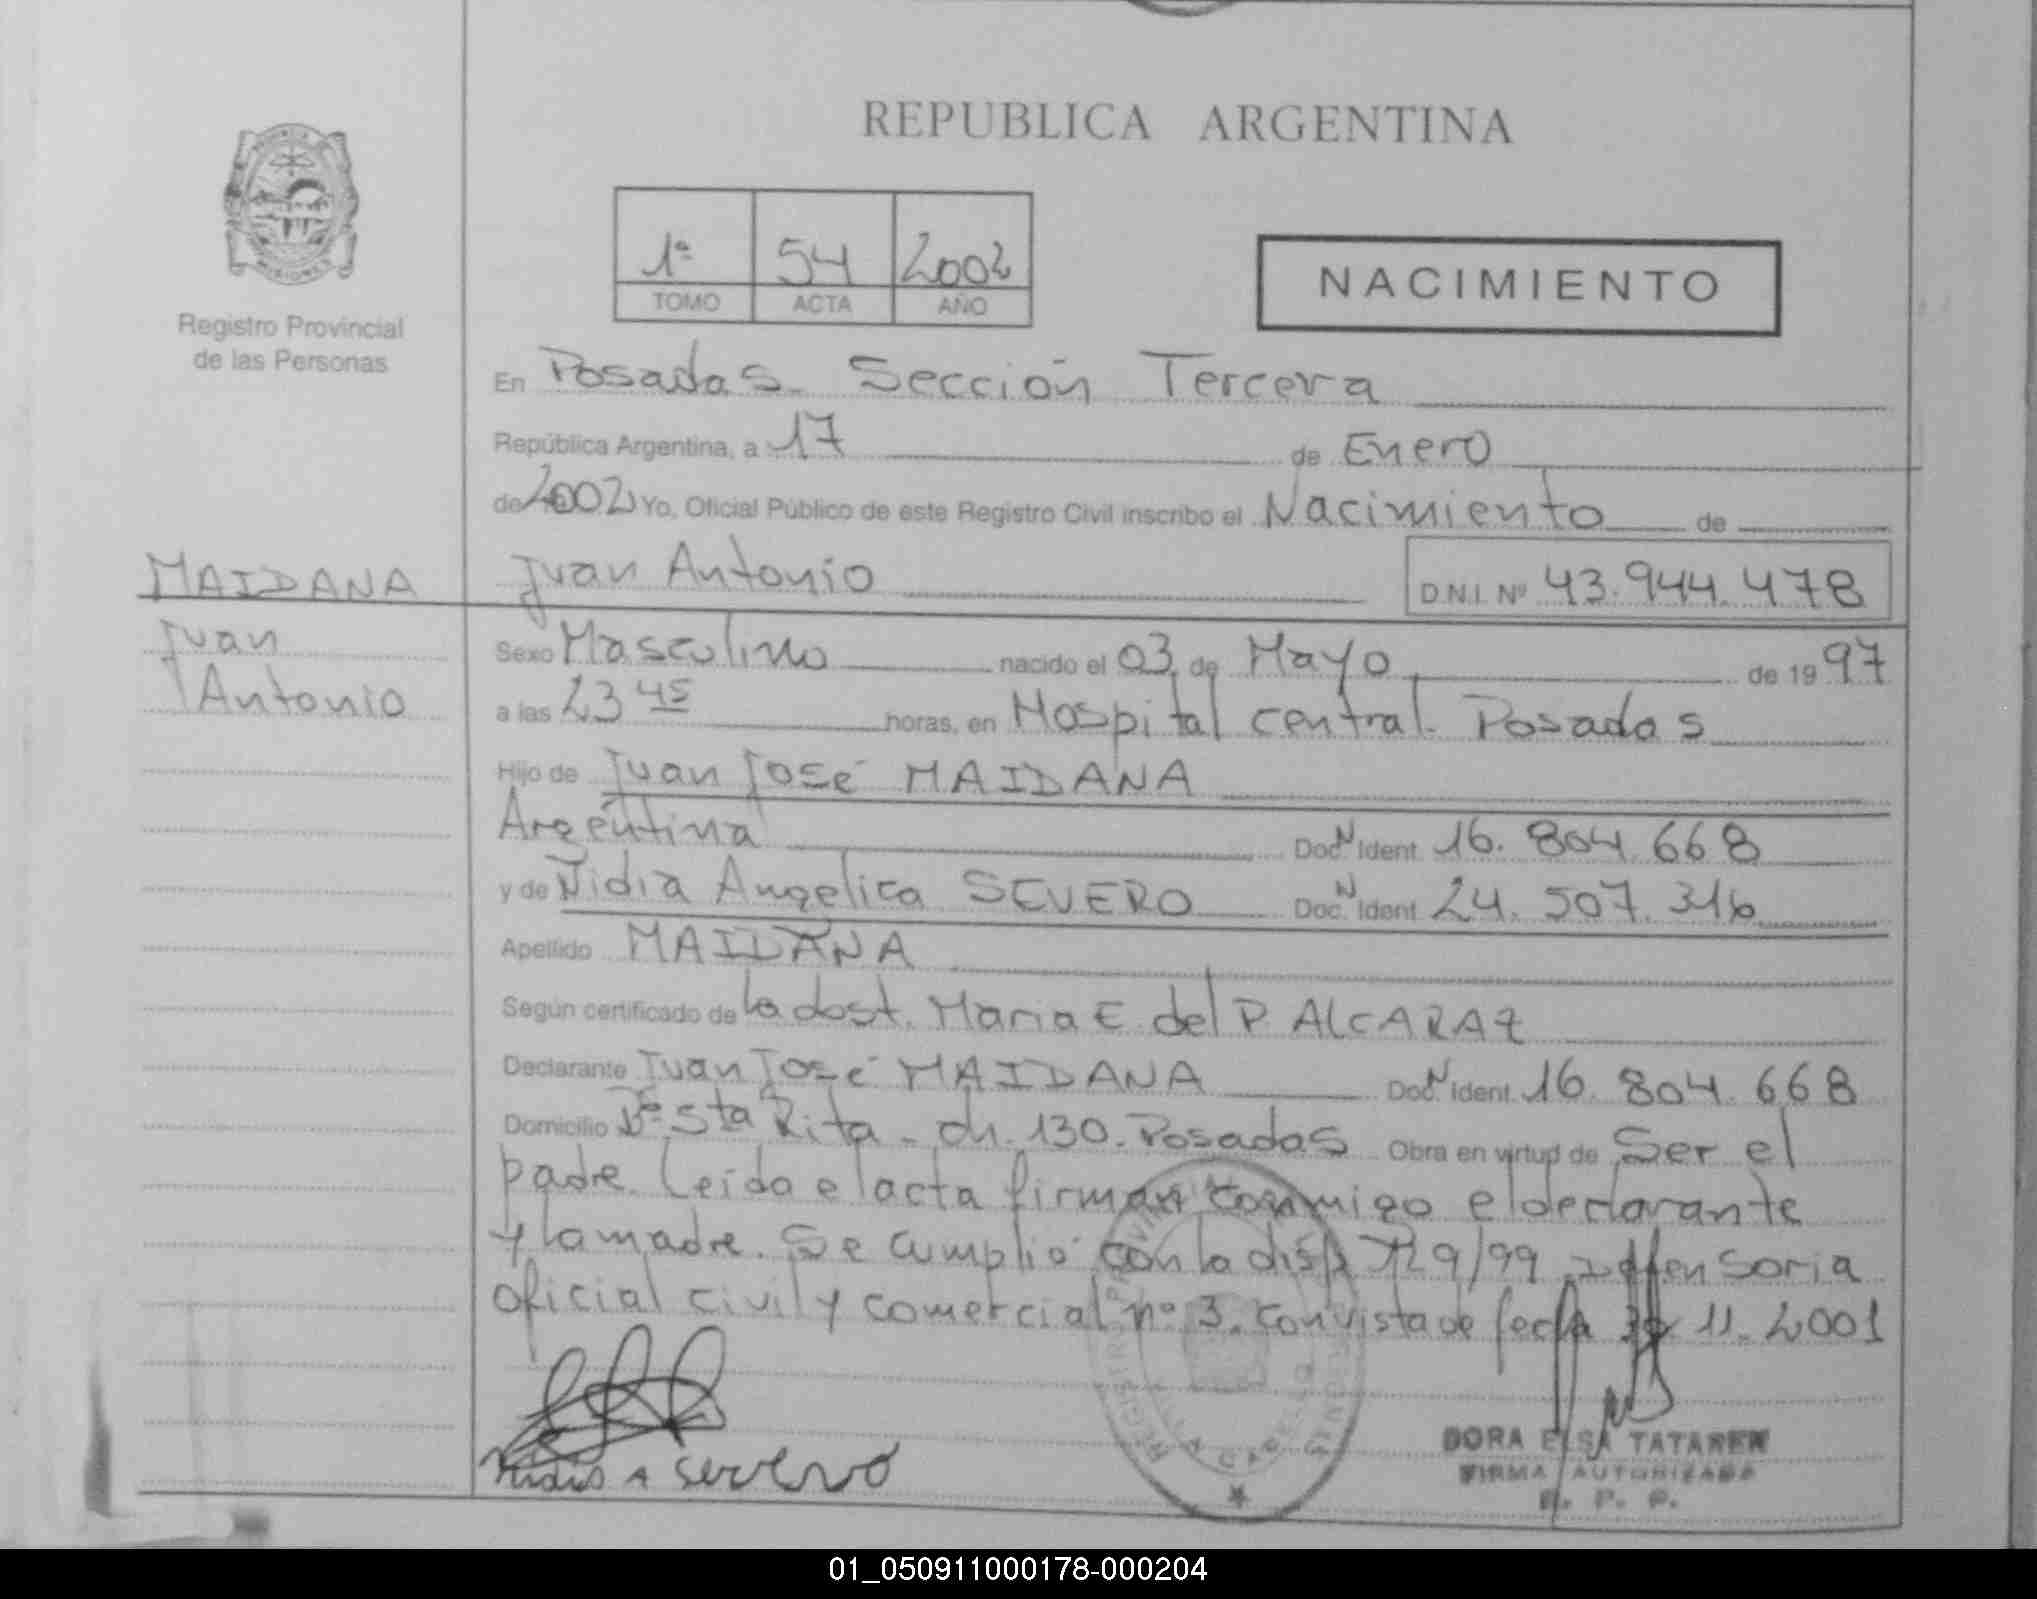 REPUBLICA ARGENTINA
MISIONES
Registro Provincial
de las Personas
1ª 54 2002
TOMO ACTA AÑO
NACIMIENTO
En Posadas. Sección Tercera
República Argentina, a 17 de Enero
de 2002 Yo, Oficial Público de este Registro Civil inscribo el Nacimiento de
MAIDANA
Juan
Antonio
Juan Antonio D.N.I. Nº 43.944.478
Sexo Masculino nacido el 03 de Mayo de 19 97
a las 23 45 horas, en Hospital central. Posadas
Hijo de Juan José MAIDANA
Argentina Doc. N Ident. 16.804.668
y de Nidia Angelica SEVERO Doc. N Ident. 24.507.316
Apellido MAIDANA
Según certificado de la dost. Maria E. del P. ALCARAZ
Declarante Juan José MAIDANA Doc. N Ident. 16.804.668
Domicilio Bº Sta Rita - ch. 130. Posadas Obra en virtud de Ser el
padre. Leida el acta firman conmigo el declarante
y la madre. Se cumplió con la disp. 729/99
oficial civil y comercial nº 3. con vista de fecha 11.2001
Nidia A Severo
DORA ELSA TATAREN
FIRMA AUTORIZADA
R. P. P.
01_050911000178-000204